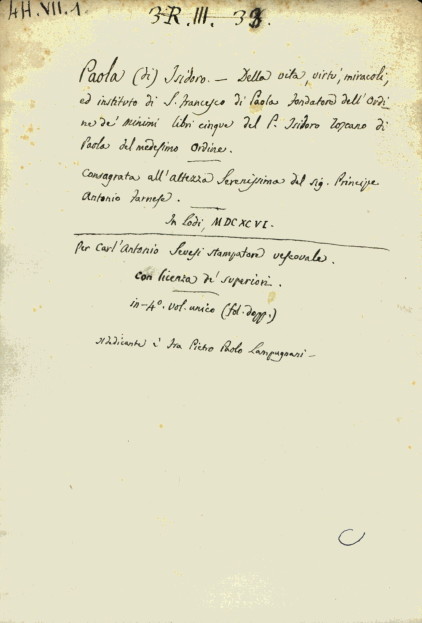 4H.VII.1.
3R.III.38.
Paola (di) Isidoro. — Della vita, virtù, miracoli,
ed instituto di S. Francesco di Paola fondatore dell'Ordi
ne de' Minimi libri cinque del P. Isidoro Toscano di
Paola del medesimo Ordine.
Consagrata all'Altezza Serenissima del sig. Principe
Antonio Farnese.
In Lodi, MDCXCVI.
Per Carl'Antonio Sevesi stampatore vescovale.
con licenza de' superiori.
in-4º. vol. unico (fol. dopp.)
Il dedicante è Fra Pietro Paolo Lampugnani —